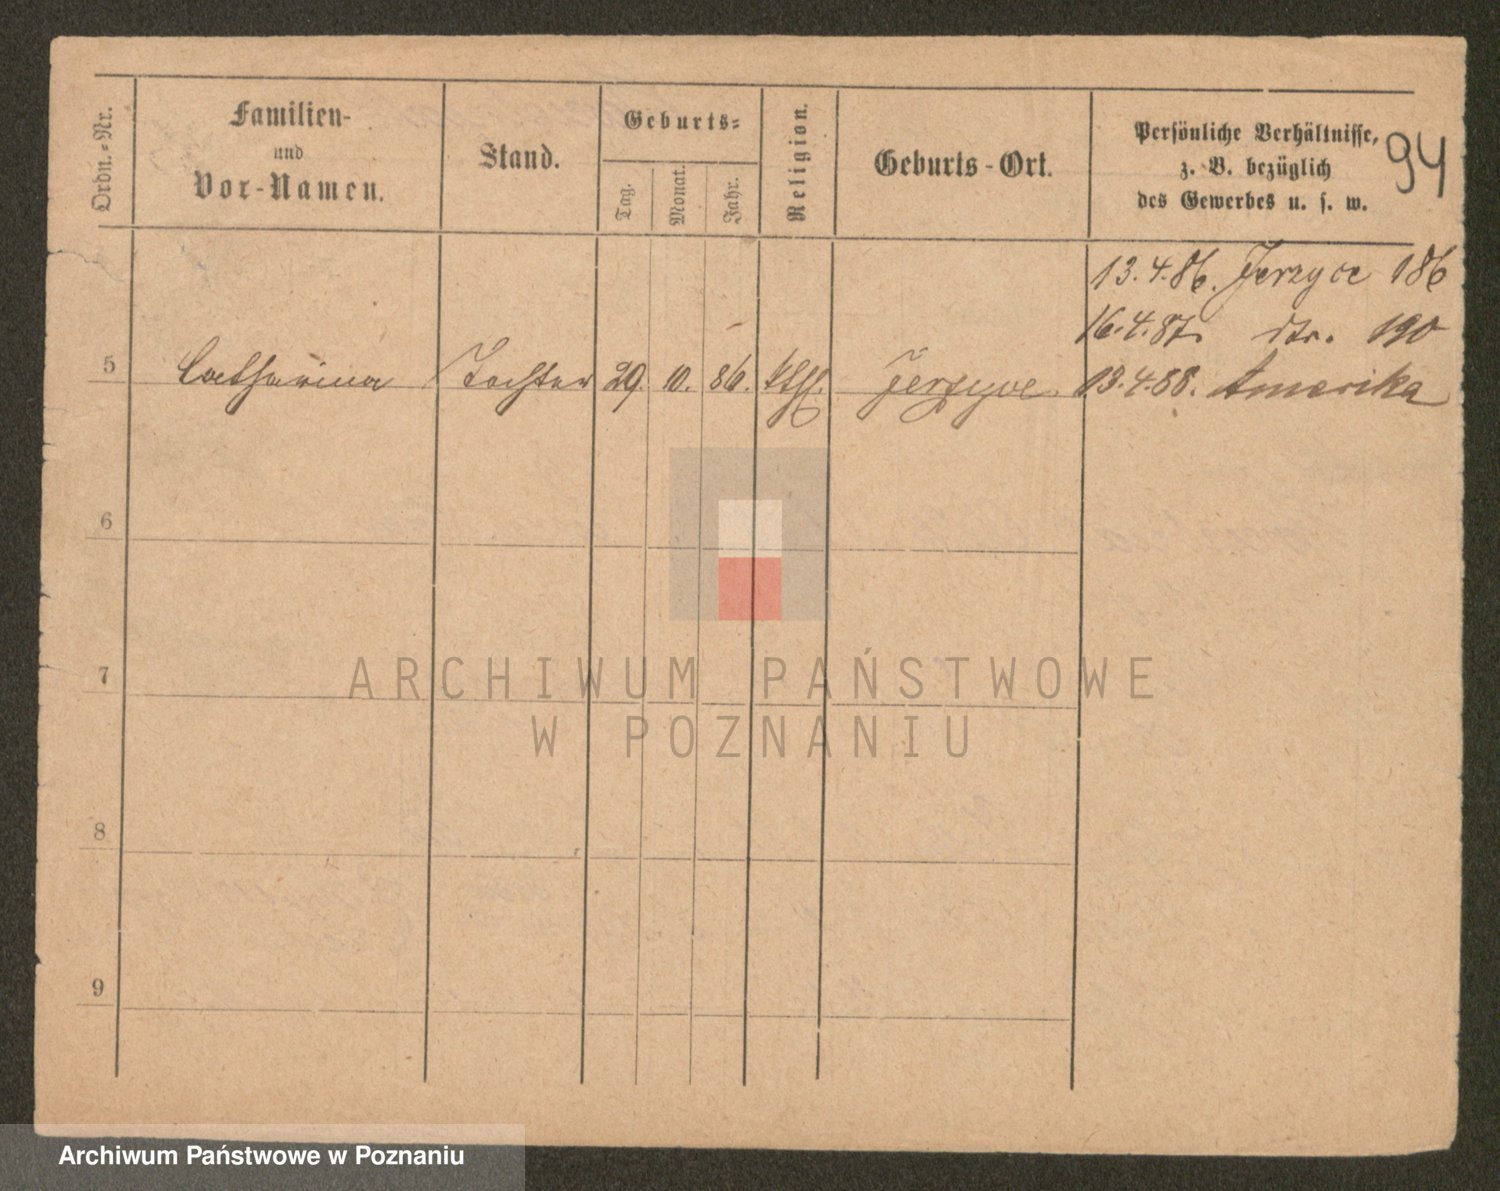 Ordn.-Nr.
Familien-
und
Vor-Namen.
Stand.
Geburts-
Tag.
Monat.
Jahr.
Religion.
Geburts-Ort.
Persönliche Verhältnisse,
z. B. bezüglich
des Gewerbes u. s. w.
94
13.4.86. Jerzyce 186
16.4.87. dto. 190
5 Catharina Tochter 29. 10. 86. kth. Jerzyce 13.4.88. Amerika
6
7
8
9
ARCHIWUM PAŃSTWOWE
W POZNANIU
Archiwum Państwowe w Poznaniu